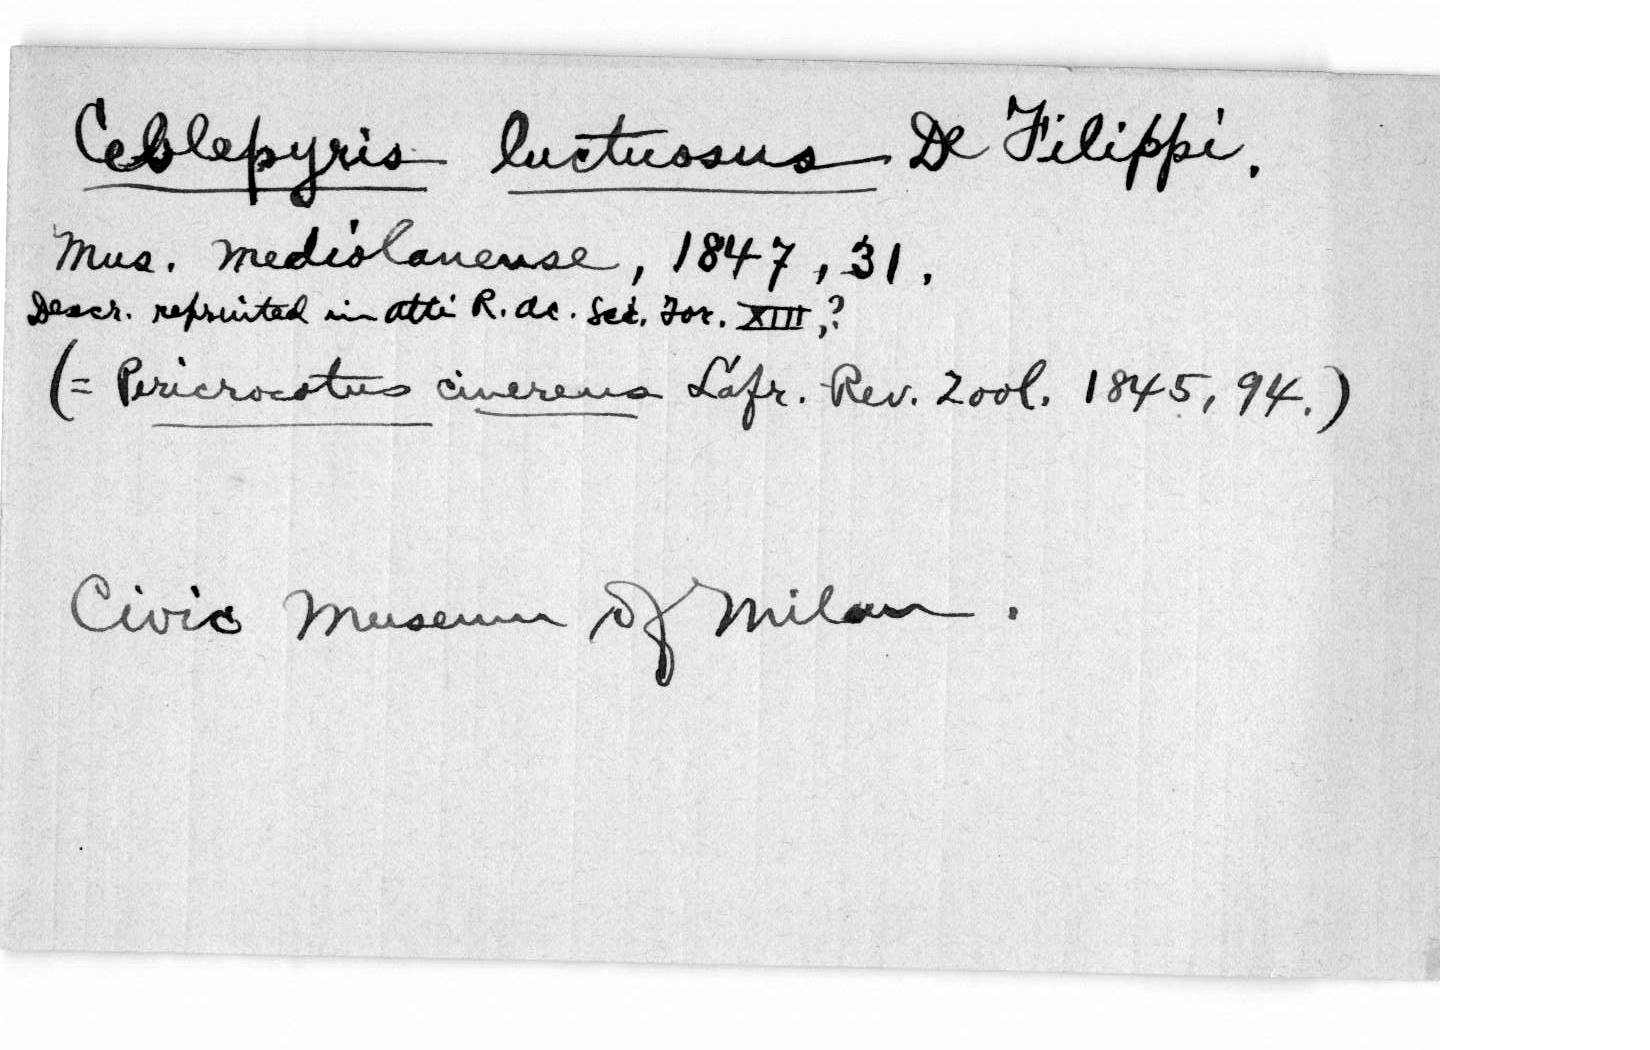 Ceblepyris luctuosus De Filippi.
Mus. Mediolanense, 1847, 31.
Descr. reprinted in Atti R. Ac. Sci. Tor. XIII, ?
(= Pericrocotus cinereus Lafr. Rev. Zool. 1845, 94.)
Civic Museum of Milan.